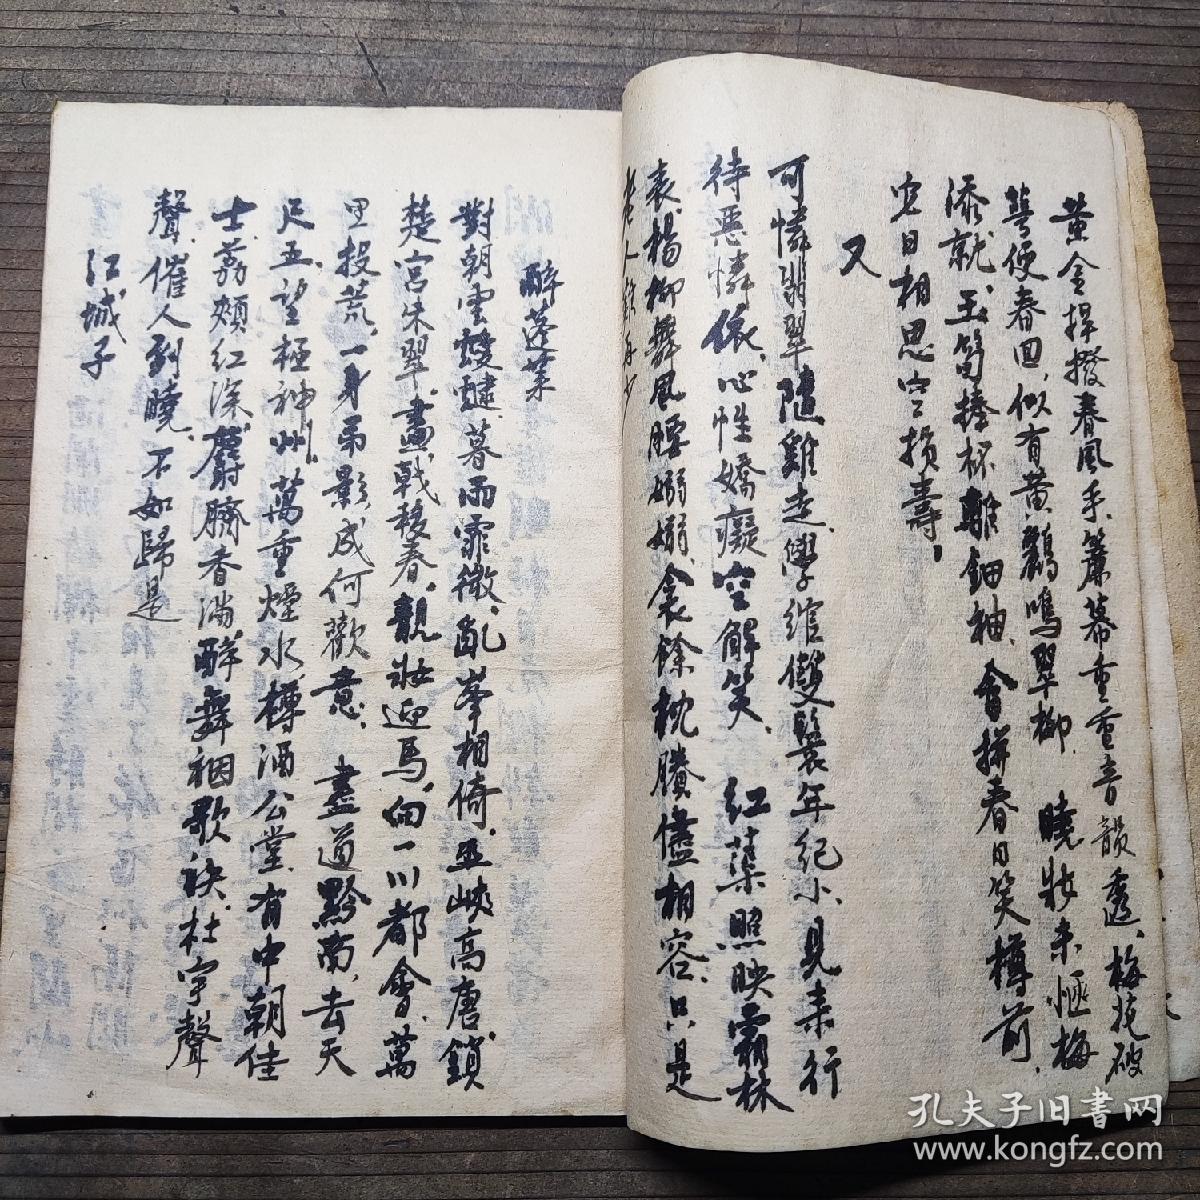 黃金捍撥春風手、簾幕重重音韻透、梅蕊破
萼便春回、似有黃鸝鳴翠柳　曉妝未愜梅
添就、玉筍捧杯離鈿袖、會拚春日笑樽前、
它日相思空損壽、
又
可憐翡翠隨雞走、學綰雙鬟年紀小、見來行
待惡憐儂、心性嬌癡空解笑、　紅蕖照映霜林
表、楊柳舞風腰嫋嫋、衾餘枕賸儘相容、只是
老人難再少
醉蓬萊
對朝雲靉靆、暮雨霏微、亂峯相倚、巫峽高唐、鎖
楚宮朱翠、畫戟移春、靚妝迎馬、向一川都會、萬
里投荒、一身弔影、成何歡意、　盡道黔南、去天
尺五、望極神州、萬重煙水、樽酒公堂、有中朝佳
士、荔頰紅深、麝臍香滿、醉舞裀歌袂、杜宇聲
聲、催人到曉、不如歸是
江城子
孔夫子旧書网
www.kongfz.com